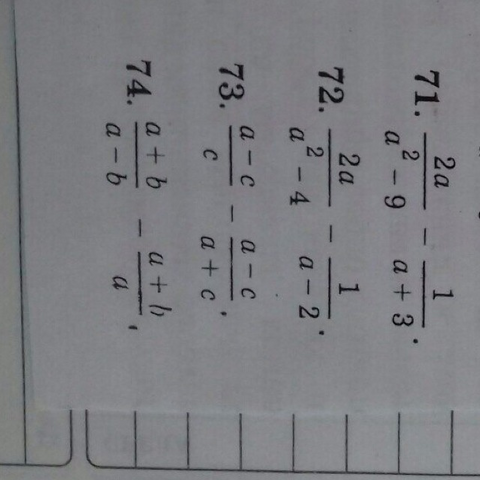 71. \frac{2a}{a^2 - 9} - \frac{1}{a + 3}.
72. \frac{2a}{a^2 - 4} - \frac{1}{a - 2}.
73. \frac{a - c}{c} - \frac{a - c}{a + c}.
74. \frac{a + b}{a - b} - \frac{a + b}{a}.